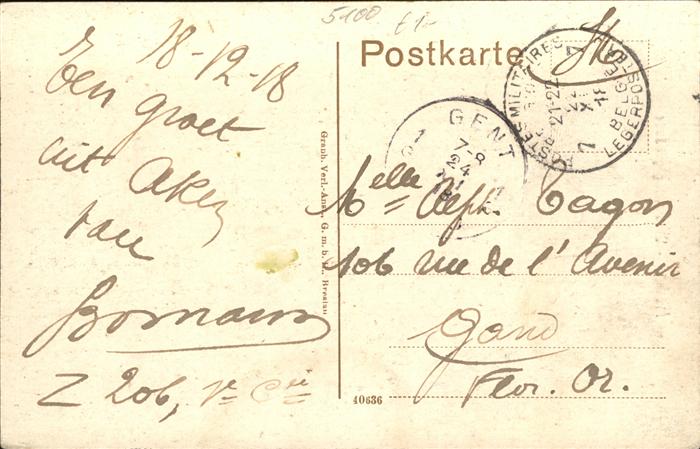 5100 £1-
18-12-18
Een groet
uit Aken
van
Bomann
Z 206, 1e Cie
Postkarte
SM
POSTES MILITAIRES
BELGIE
LEGERPOSTERIJ
21-22
XII
18
7
GENT
7-8
24
Graph. Verl.-Anst. G. m. b. H., Breslau
Melle Alph. Tagon
106 rue de l'Avenir
Gand
Flor. Or.
40636